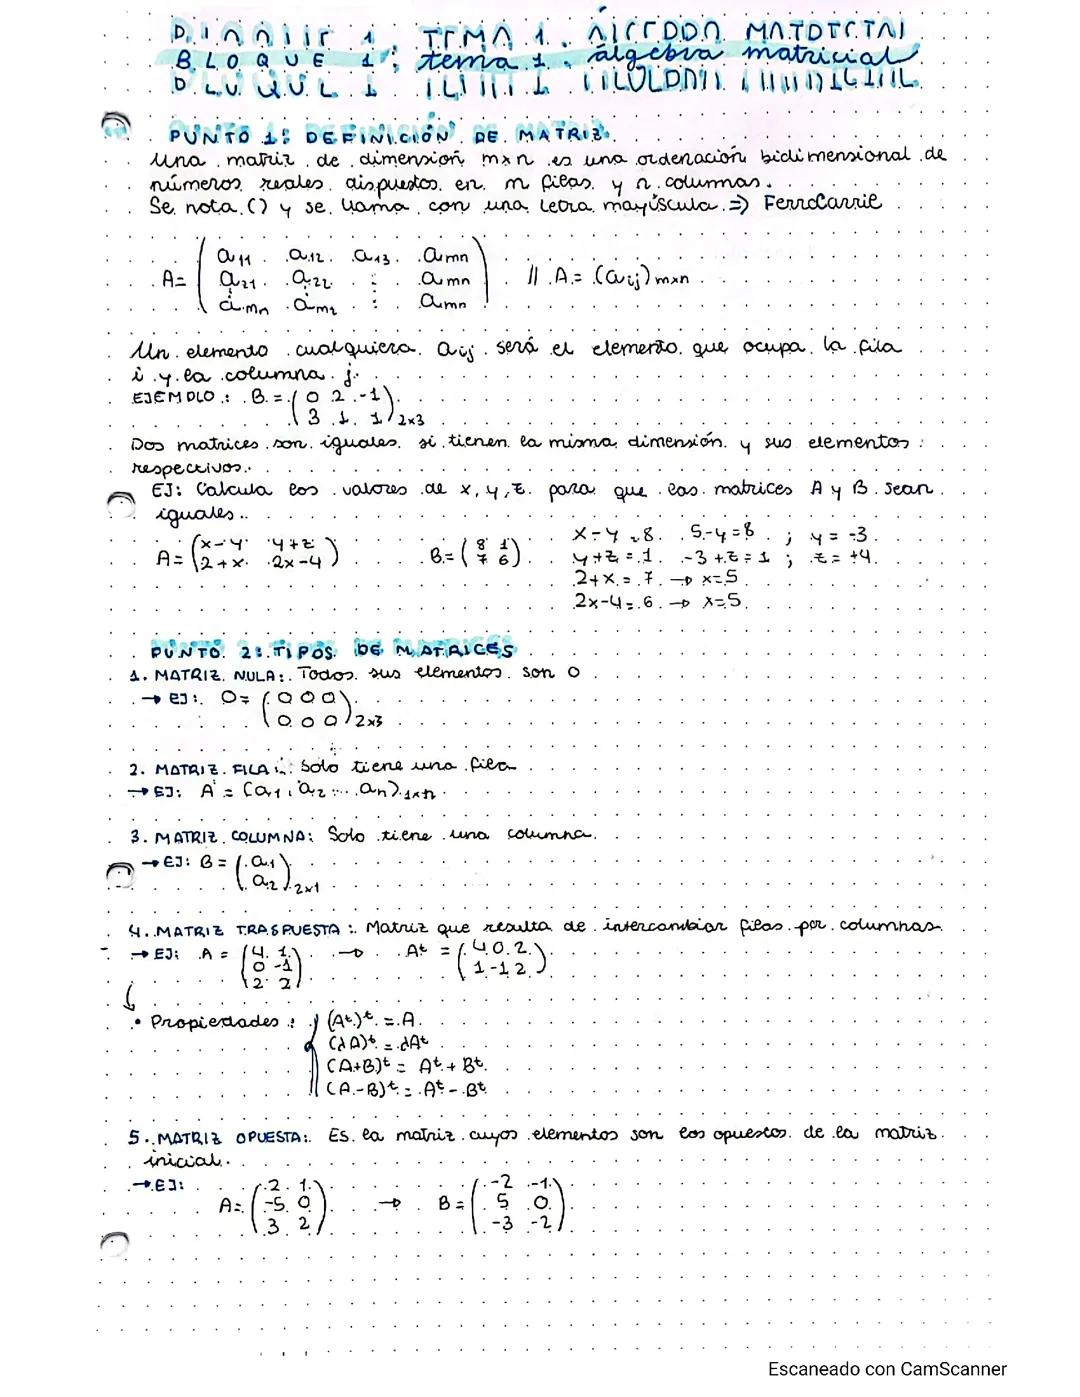 BLOQUE 1: tema 1. álgebra matricial
PUNTO 1: DEFINICIÓN DE MATRIZ.
Una matriz de dimensión mxn es una ordenación bidimensional de
números reales dispuestos en m filas y n columnas.
Se nota () y se llama con una letra mayúscula => Ferrocarril
A= ( a11 a12 a13 amn
a21 a22 : amn // A = (aij)mxn
amn am2 : amn )
Un elemento cualquiera aij será el elemento que ocupa la fila
i y la columna j.
EJEMPLO: B = ( 0 2 -1
3 1 1 ) 2x3
Dos matrices son iguales si tienen la misma dimensión y sus elementos
respectivos.
EJ: Calcula los valores de x, y, z para que las matrices A y B sean
iguales.
A = ( x-y y+z
2+x 2x-4 ) B = ( 8 1
7 6 )
x-y=8 5-y=8 ; y=-3
y+z=1 -3+z=1 ; z=+4
2+x=7 → x=5
2x-4=6 → x=5
PUNTO 2: TIPOS DE MATRICES
1. MATRIZ NULA: Todos sus elementos son 0
→ EJ: O= ( 0 0 0
0 0 0 ) 2x3
2. MATRIZ FILA: Solo tiene una fila
→ EJ: A = (a1, a2 ... an) 1xn
3. MATRIZ COLUMNA: Solo tiene una columna.
→ EJ: B = ( a1
a2 ) 2x1
4. MATRIZ TRASPUESTA: Matriz que resulta de intercambiar filas por columnas
→ EJ: A = ( 4 1
0 -1
2 2 ) → At = ( 4 0 2
1 -1 2 )
• Propiedades: (At)t = A
(λA)t = λAt
(A+B)t = At + Bt
(A-B)t = At - Bt
5. MATRIZ OPUESTA: Es la matriz cuyos elementos son los opuestos de la matriz
inicial.
→ EJ:
A= ( 2 1
-5 0
3 2 ) → B = ( -2 -1
5 0
-3 -2 )
Escaneado con CamScanner